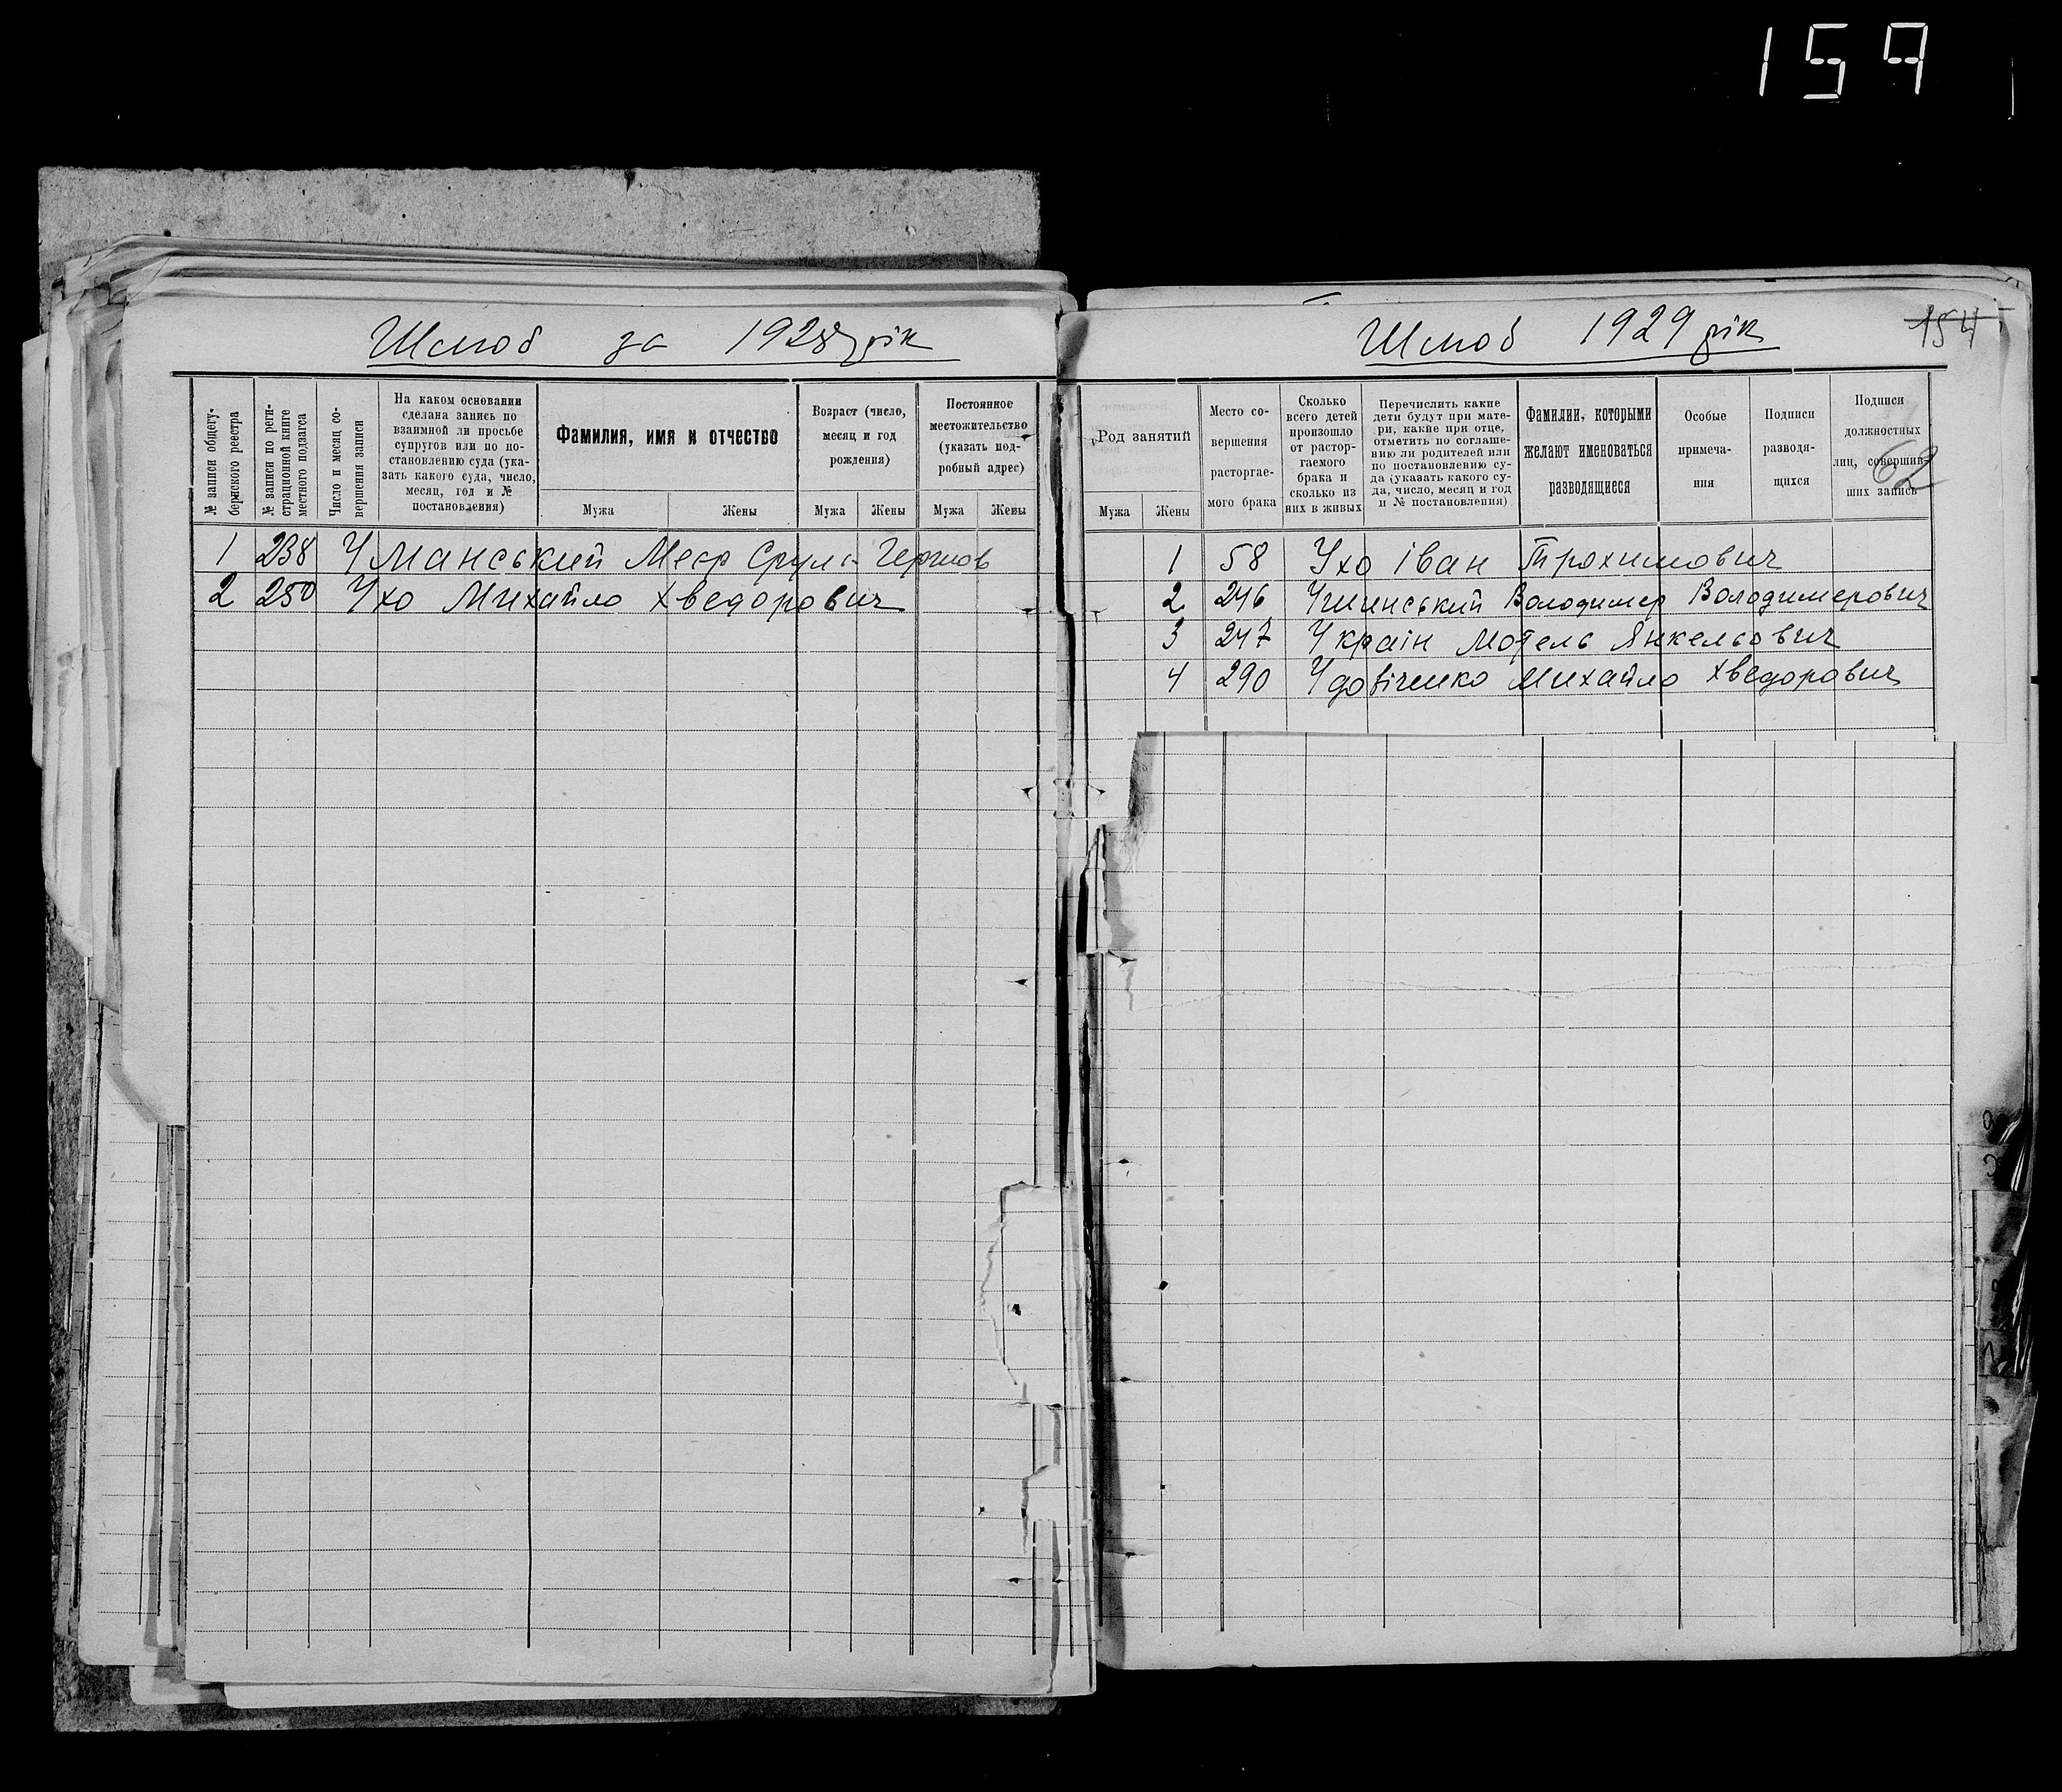 159
Шлюб за 1928 рік
№ записи общегу-
бернского реестра
№ записи по реги-
страционной книге
местного подзагса
Число и месяц со-
вершения записи
На каком основании
сделана запись по
взаимной ли просьбе
супругов или по по-
становлению суда (ука-
зать какого суда, число,
месяц, год и №
постановления)
Фамилия, имя и отчество
Мужа Жены
Возраст (число,
месяц и год
рождения)
Мужа Жены
Постоянное
местожительство
(указать под-
робный адрес)
Мужа Жены
1 238 Уманський Меєр Сруль Гершов
2 250 Ухо Михайло Хведорович
Шлюб 1929 рік
154
62
Род занятий
Мужа Жены
Место со-
вершения
расторгае-
мого брака
Сколько
всего детей
произошло
от растор-
гаемого
брака и
сколько из
них в живых
Перечислить какие
дети будут при мате-
ри, какие при отце,
отметить по соглаше-
нию ли родителей или
по постановлению су-
да (указать какого су-
да, число, месяц и год
и № постановления)
Фамилии, которыми
желают именоваться
разводящиеся
Особые
примеча-
ния
Подписи
разводя-
щихся
Подписи
должностных
лиц, совершив-
ших запись
1 58 Ухо Іван Трохимович
2 246 Ушинський Володимер Володимерович
3 247 Украін Мотель Янкельович
4 290 Удовіченко Михайло Хведорович